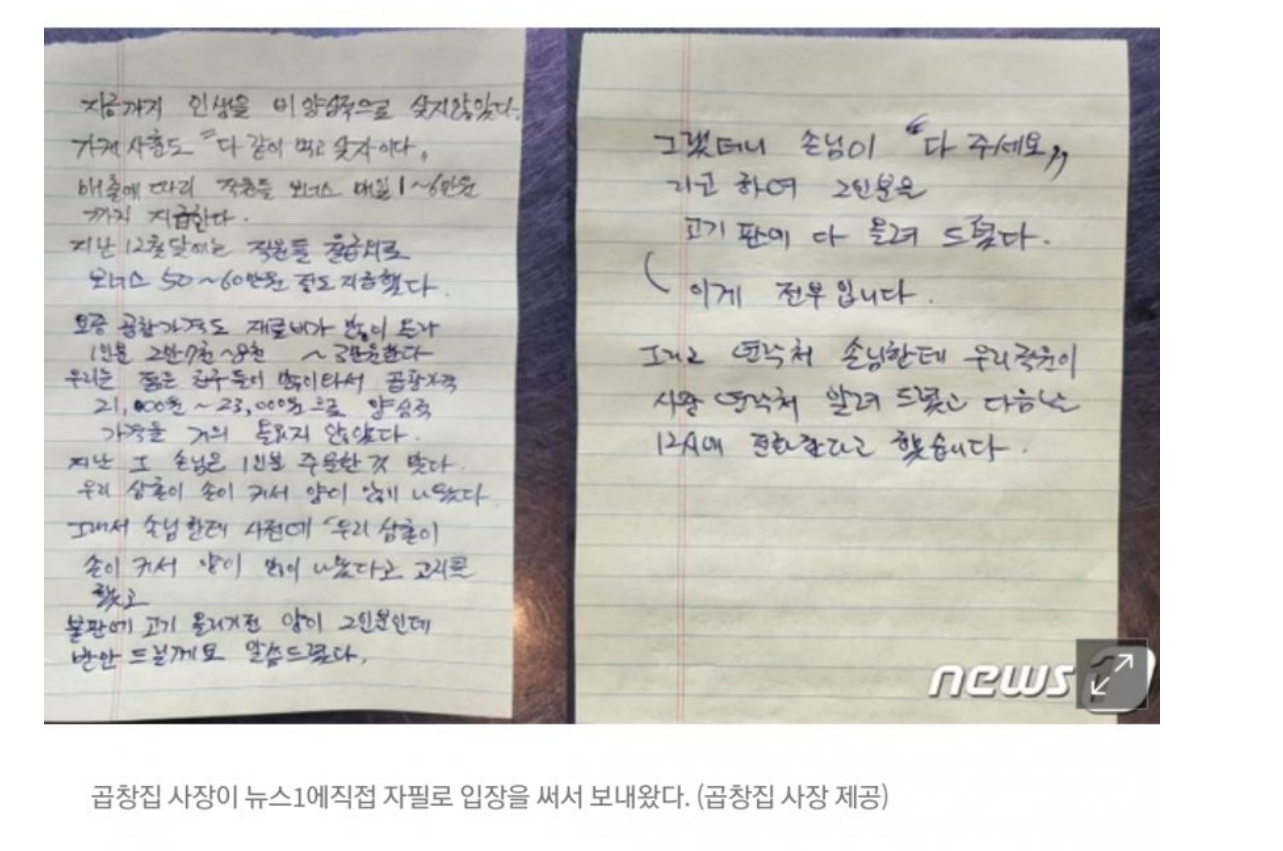 지금까지 인생을 비양심적으로 살지않았다.
가게 사훈도 "다 같이 먹고 살자이다.
매출에 따라 직원들 보너스 매일 1~6만원
까지 지급한다.
지난 12월달에는 직원들 월급외로
보너스 50~60만원 정도 지급했다.
요즘 곱창가격도 재료비가 많이 올라
1인분 2만7천~8천 ~ 3만원한다
우리는 젊은 친구들이 많이 곱창가격
21,000원~23,000원으로 양심적
가격을 거의 올리지 않았다.
지난 그 손님은 1인분 주문한 것 맞다.
우리 삼촌이 손이 커서 양이 많게 나왔다
그래서 손님한테 사전에 "우리 삼촌이
손이 커서 양이 많이 나왔다고 고지를
했고
불판에 고기 올리기전 양이 2인분인데
반만 드릴께요 말씀드렸다.
그랬더니 손님이 "다 주세요"
라고 하여 2인분을
고기 판에 다 올려 드렸다.
이게 전부입니다.
그리고 연락처 손님한테 우리직원이
사장 연락처 알려 드렸고 다음날
12시에 전화한다고 했습니다.
news1
곱창집 사장이 뉴스1에직접 자필로 입장을 써서 보내왔다. (곱창집 사장 제공)